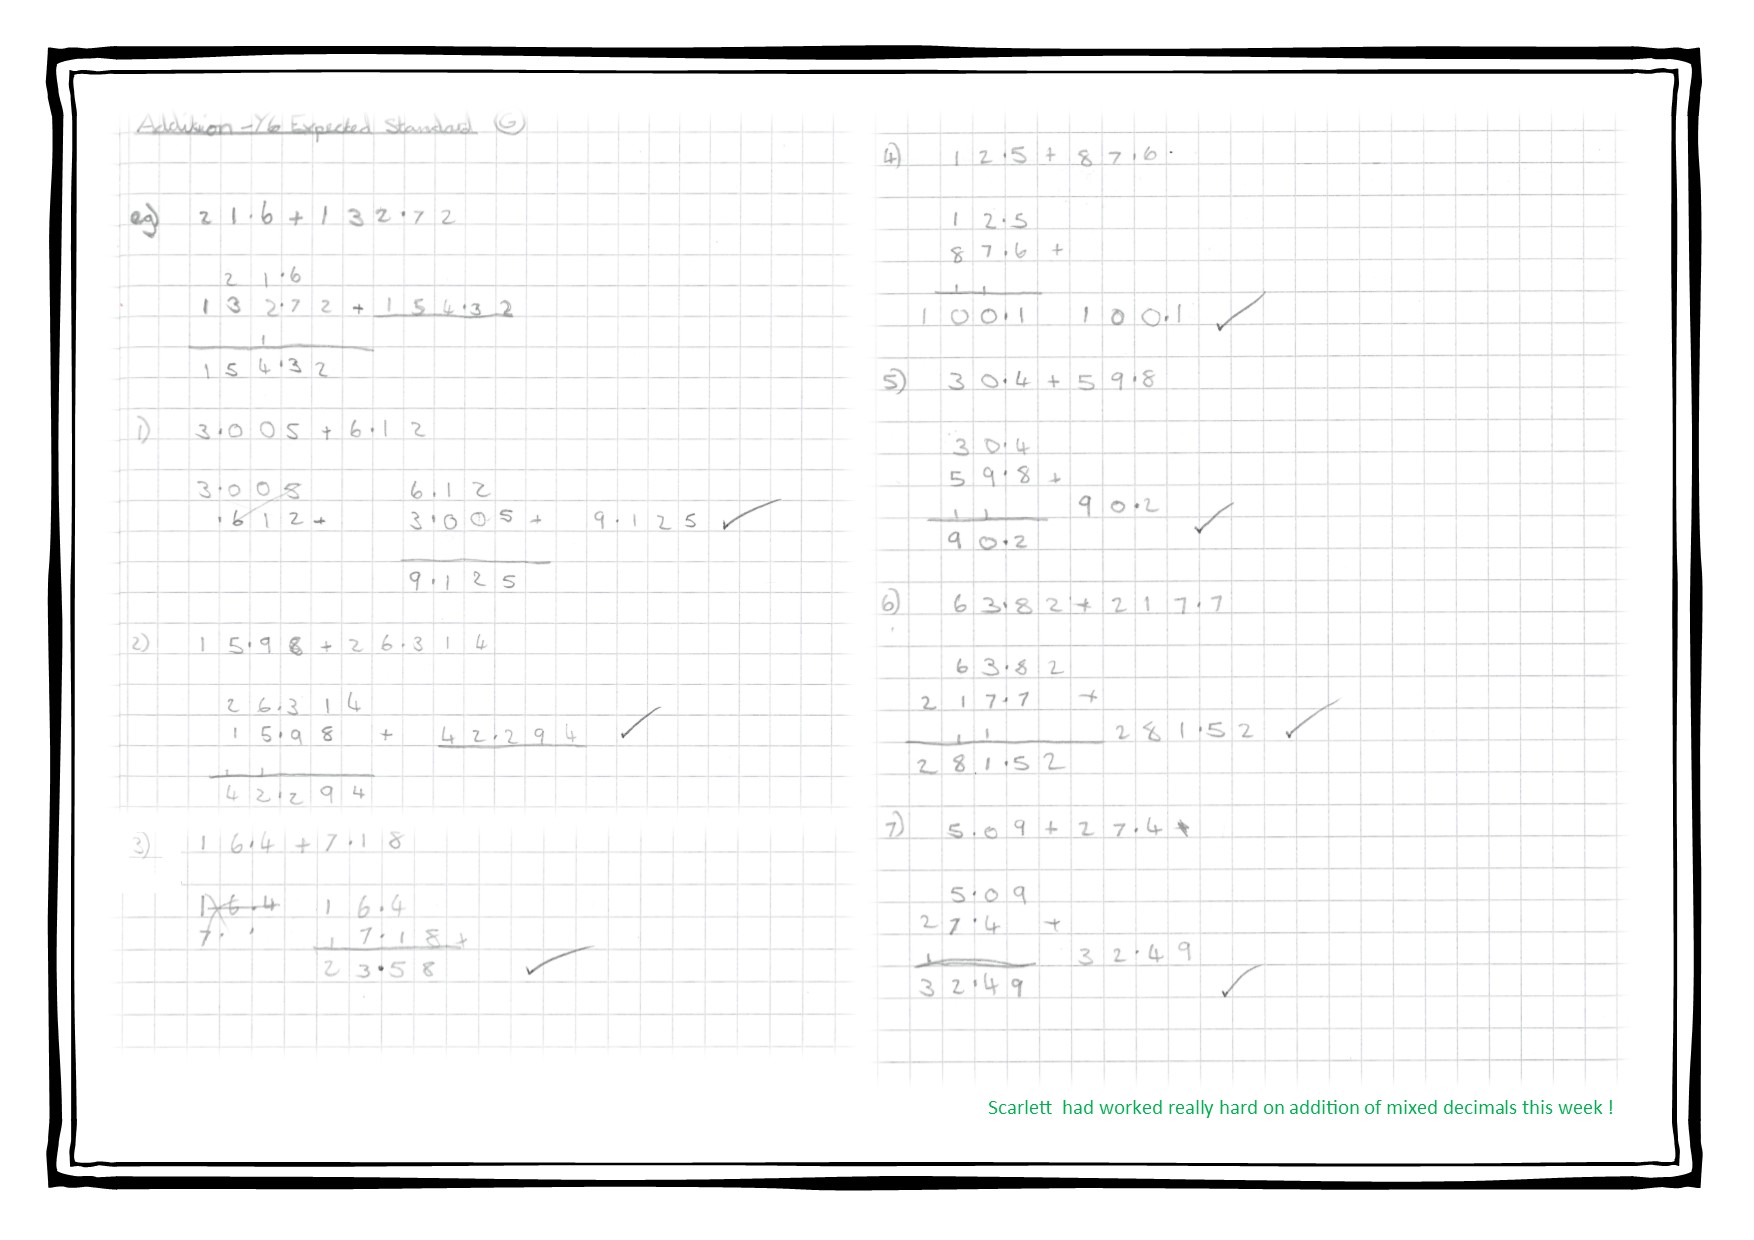 Addition - Y6 Expected Standard G
eg) 21.6 + 132.72
21.6
132.72 + 154.32
1
154.32
1) 3.005 + 6.12
3.005 6.12
.612 + 3.005 + 9.125 ✓
9.125
2) 15.98 + 26.314
26.314
15.98 + 42.294 ✓
1 1
42.294
3) 16.4 + 7.18
16.4 16.4
7. 1 7.18 +
23.58 ✓
4) 12.5 + 87.6
12.5
87.6 +
1 1
100.1 100.1 ✓
5) 30.4 + 59.8
30.4
59.8 +
1 1 90.2 ✓
90.2
6) 63.82 + 217.7
63.82
217.7 +
1 1 281.52 ✓
281.52
7) 5.09 + 27.4
5.09
27.4 +
1 32.49 ✓
32.49
Scarlett had worked really hard on addition of mixed decimals this week !